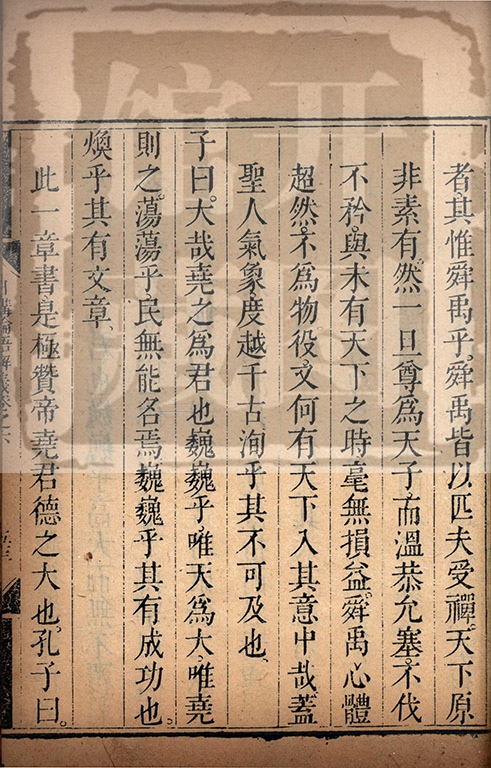 者其惟舜禹乎舜禹皆以匹夫受禪天下原
非素有然一旦尊爲天子而溫恭允塞不伐
不矜與未有天下之時毫無損益舜禹心體
超然不爲物役文何有天下入其意中哉蓋
聖人氣象度越千古洵乎其不可及也
子曰大哉堯之爲君也巍巍乎唯天爲大唯堯
則之蕩蕩乎民無能名焉巍巍乎其有成功也
煥乎其有文章
此一章書是極贊帝堯君德之大也孔子曰